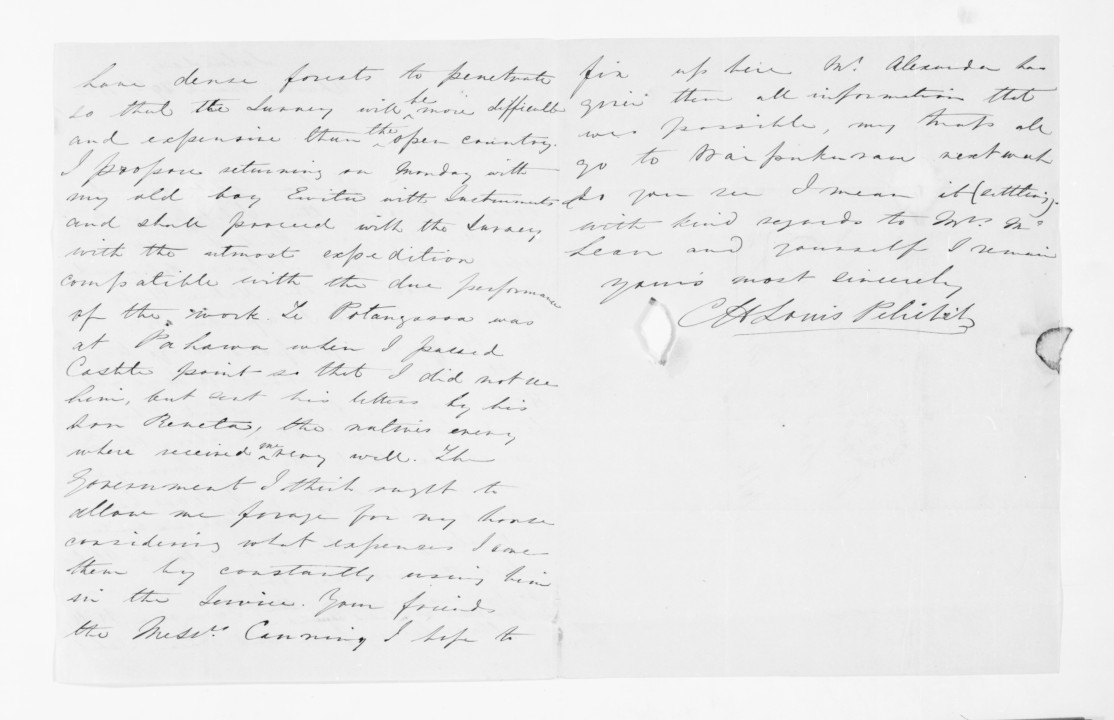 have dense forests to penetrate
so that the Survey will be more difficult
and expensive than the open country.
I propose returning on Monday with
my old boy with Instruments
and shall proceed with the Survey
with the utmost expedition
compatible with the due performance
of the work. Te Potangaroa was
at Pahawa when I passed
Castle point so that I did not see
him, but sent his letters by his
son Reneta, the natives every
where received me very well. The
Government I think ought to
allow me forage for my horse
considering what expenses I save
them by constantly using him
in the Service. Your friends
the Messrs Canning I hope to
fix up here Mr. Alexander has
given them all information that
was possible, my traps all
go to next week
So you see I mean it (settling).
with kind regards to Mrs. Mc
Lean and yourself I remain
yours most sincerely
C H Louis Pelichet